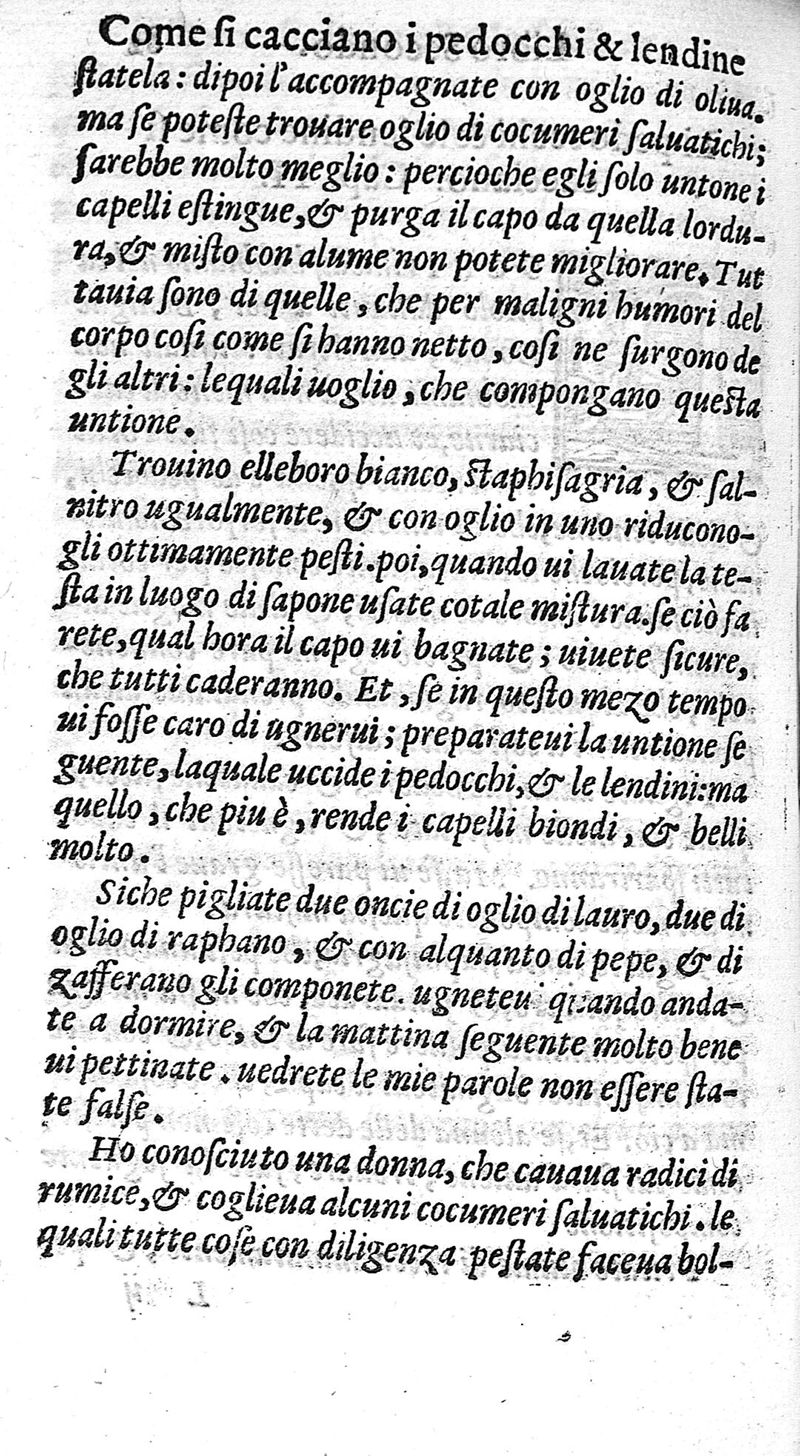 Come ſi cacciano i pedocchi & lendine
ſtatela: dipoi l'accompagnate con oglio di oliua.
ma ſe poteſte trouare oglio di cocumeri ſaluatichi;
ſarebbe molto meglio: percioche egli ſolo untone i
capelli eſtingue, & purga il capo da quella lordu-
ra, & miſto con alume non potete migliorare. Tut
tauia ſono di quelle, che per maligni humori del
corpo coſi come ſi hanno netto, coſi ne ſurgono de
gli altri: lequali uoglio, che compongano queſta
untione.
Trouino elleboro bianco, ſtaphiſagria, & ſal-
nitro ugualmente, & con oglio in uno riducono-
gli ottimamente peſti. poi, quando ui lauate la te-
ſta in luogo di ſapone uſate cotale miſtura. ſe ciò fa
rete, qual hora il capo ui bagnate; uiuete ſicure,
che tutti caderanno. Et, ſe in queſto mezo tempo
ui foſſe caro di ugnerui; preparateui la untione ſe
guente, laquale uccide i pedocchi, & le lendini: ma
quello, che piu è, rende i capelli biondi, & belli
molto.
Siche pigliate due oncie di oglio di lauro, due di
oglio di raphano, & con alquanto di pepe, & di
zafferano gli componete. ugneteu' quando anda-
te a dormire, & la mattina ſeguente molto bene
ui pettinate. uedrete le mie parole non eſſere ſta-
te falſe.
Ho conoſciuto una donna, che cauaua radici di
rumice, & coglieua alcuni cocumeri ſaluatichi. le
quali tutte coſe con diligenza peſtate faceua bol-